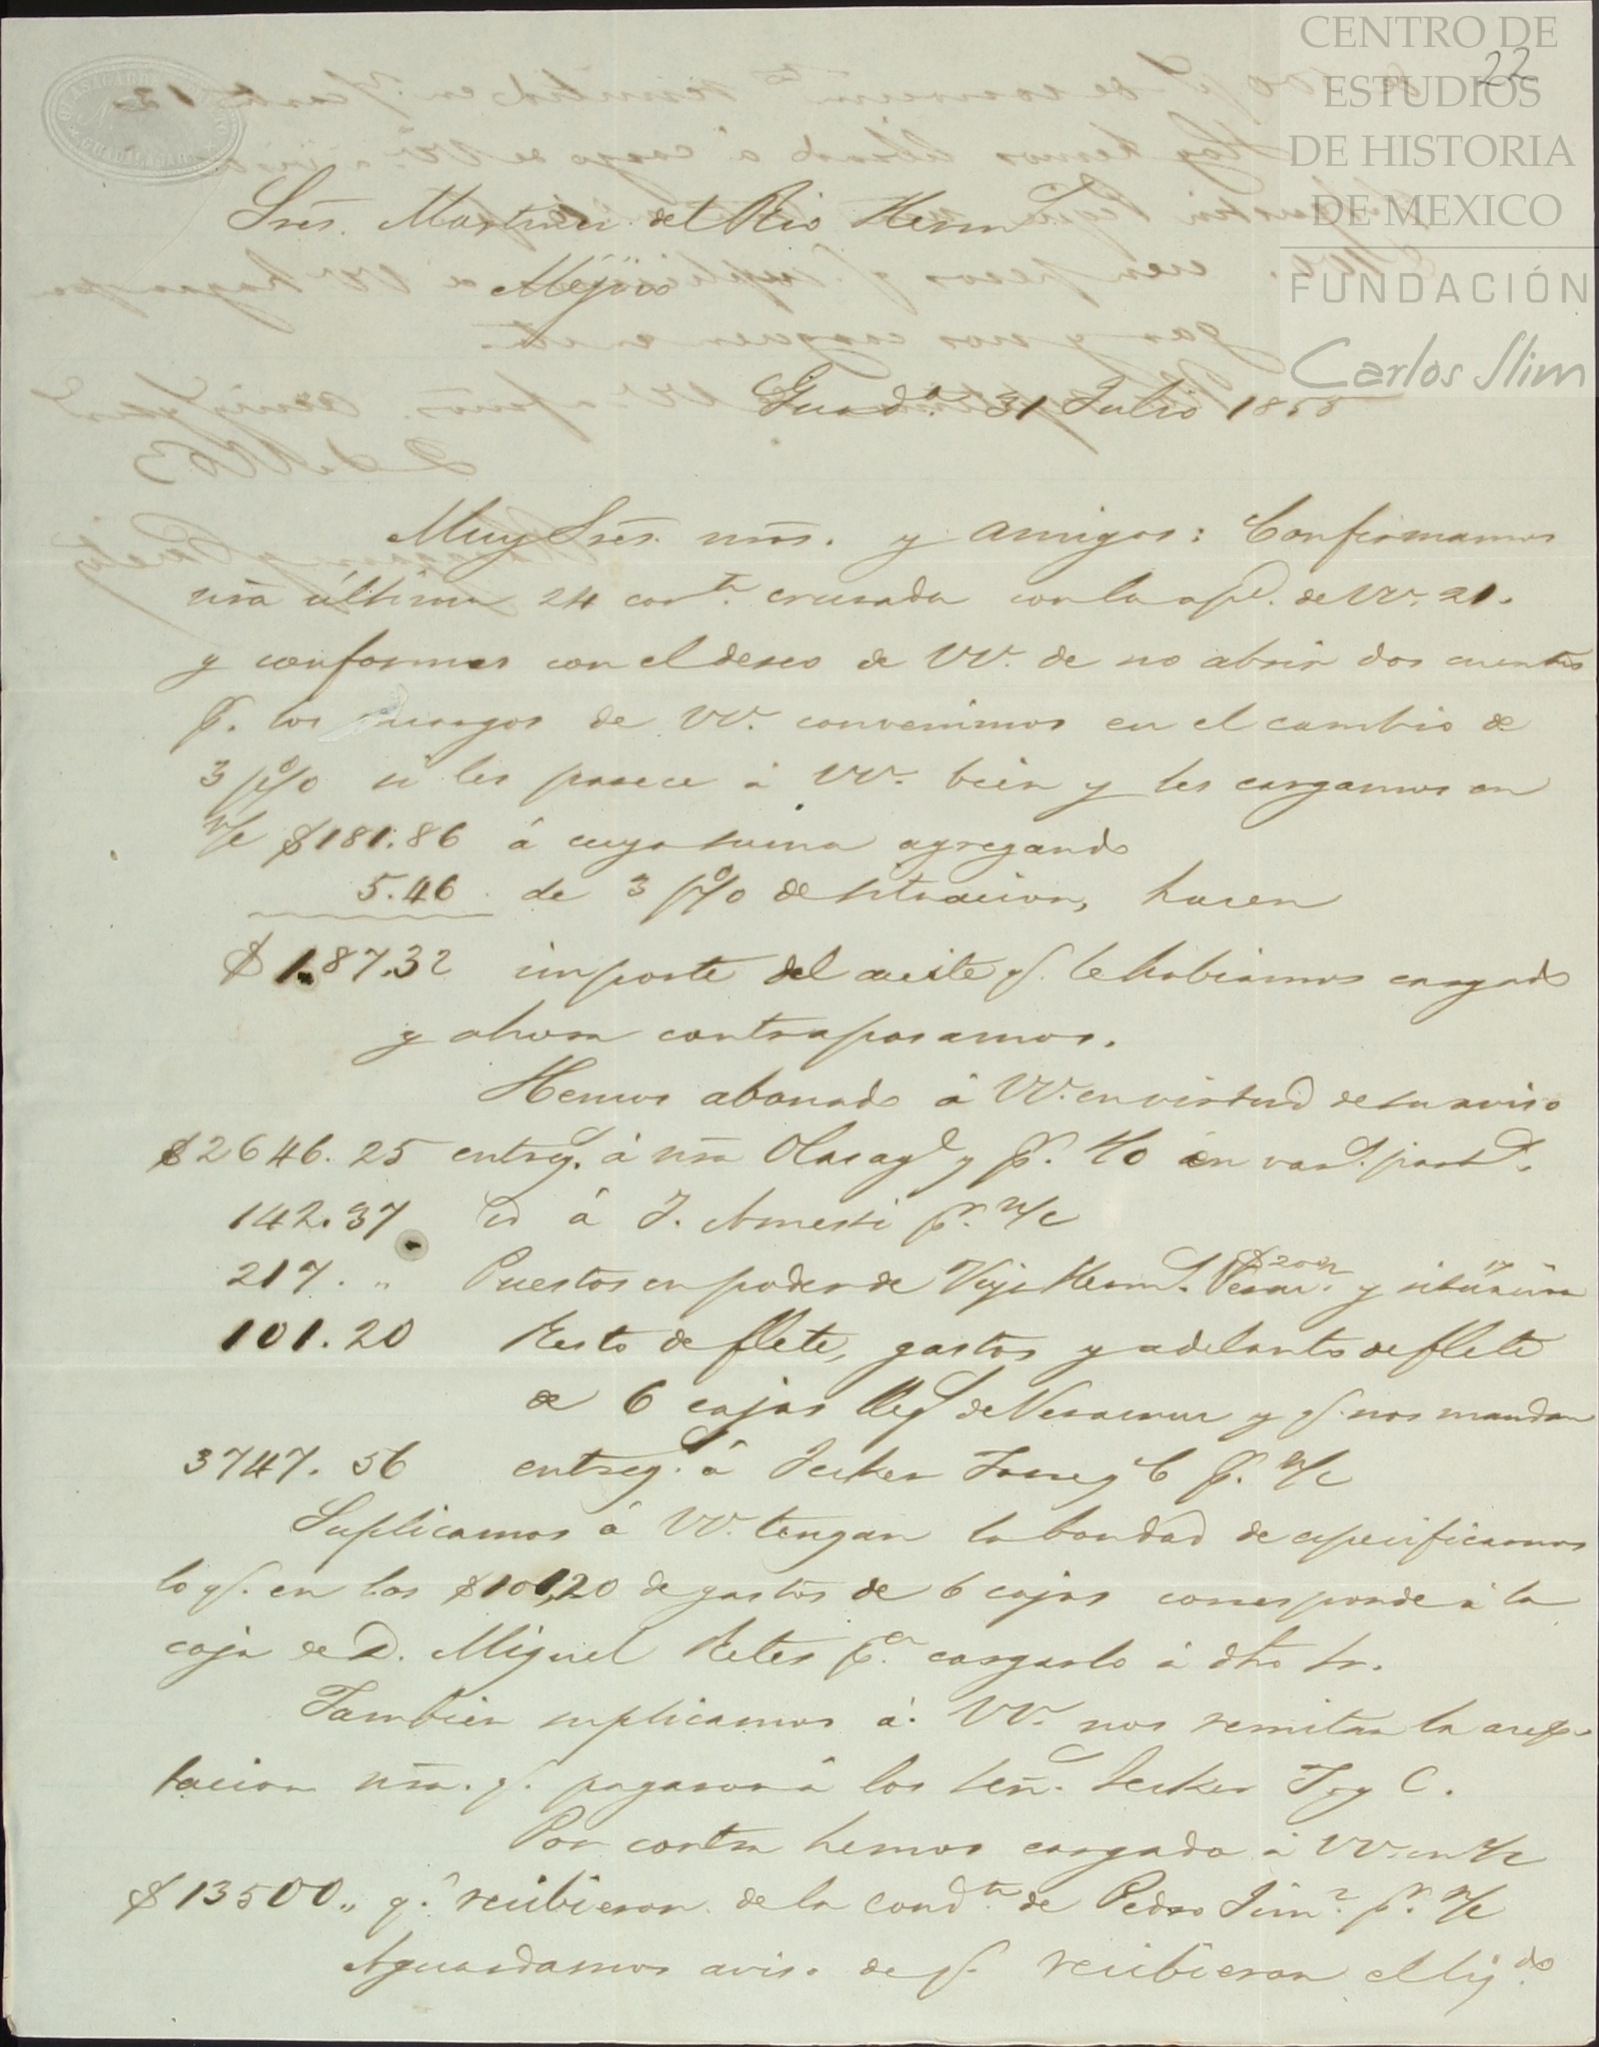 CENTRO DE
ESTUDIOS
DE HISTORIA
DE MEXICO
FUNDACIÓN
Carlos Slim
22
GUADALAJARA
Sres. Martinez del Rio Herms
Mejico
Guada. 31 Julio 1855
Muy Sres. nros. y amigos: Confirmamos
nra última 24 corte. cruzada con la apd. de VV. 21.
y conformes con el deseo de VV. de no abrir dos cuentas
p. los encargos de VV. convenimos en el cambio de
3 p% si les parece á VV. bien y les cargamos en
n/c $181.86 á cuya suma agregando
5.46 de 3 p% de situacion, hacen
$187.32 importe del aceite q. le habiamos cargado
y ahora contrapasamos.
Hemos abonado á VV. en virtud de su aviso
$2646.25 entreg. á nra y pr. en vars. partds.
142.37 id á J. pr. n/c
217. " Puestos en poder de Herms. Verac. $200 y situacion 17
101.20 Resto de flete, gastos y adelanto de flete
de 6 cajas llegs de Veracruz y q. nos mandan
3747.56 entreg. á Jecker Torre y C p. n/c
Suplicamos á VV. tengan la bondad de especificarnos
lo q. en los $101,20 de gastos de 6 cajas corresponde á la
caja de D. Miguel Retes pa. cargarlo á dho Sr.
Tambien suplicamos á VV. nos remitan la acep-
tacion nra. q. pagaron á los Señ. Jecker T. y C.
Por contra hemos cargado á VV. en n/c
$13500 " q. recibieron de la condta. de Pedro Jimz. pr. n/c
Aguardamos aviso de q. recibieron